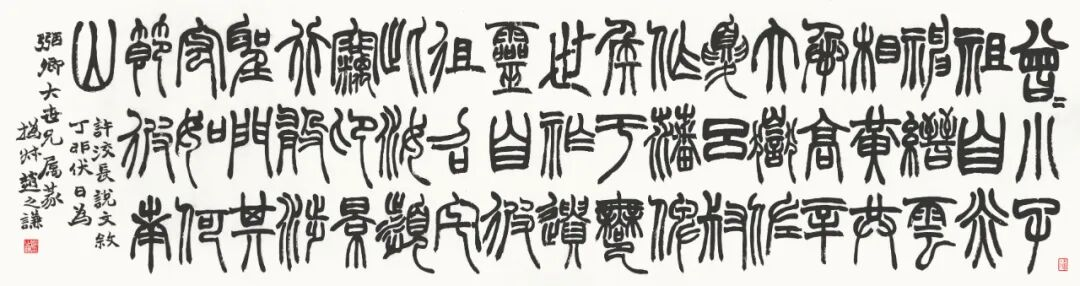 曾〻小子
祖自炎
神縉雲
相黃共
承高辛
大嶽佐
夏呂叔
作藩俾
侯于鄦
世祚遺
靈自彼
徂召宅
此汝瀕
竊卬景
行敢涉
聖門其
宏如何
節彼南
山
許洨長說文敘
丁卯伏日為
弼卿大世兄属篆
撝叔趙之謙